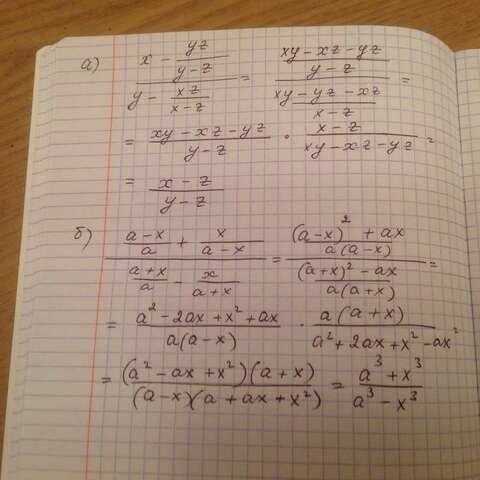 а) (x - yz/(y-z)) / (y - xz/(x-z)) = ((xy-xz-yz)/(y-z)) / ((xy-yz-xz)/(x-z)) =
= (xy-xz-yz)/(y-z) · (x-z)/(xy-xz-yz) =
= (x-z)/(y-z)
б) ((a-x)/a + x/(a-x)) / ((a+x)/a - x/(a+x)) = (((a-x)²+ax)/(a(a-x))) / (((a+x)²-ax)/(a(a+x))) =
= (a²-2ax+x²+ax)/(a(a-x)) · (a(a+x))/(a²+2ax+x²-ax) =
= ((a²-ax+x²)(a+x))/((a-x)(a+ax+x²)) = (a³+x³)/(a³-x³)